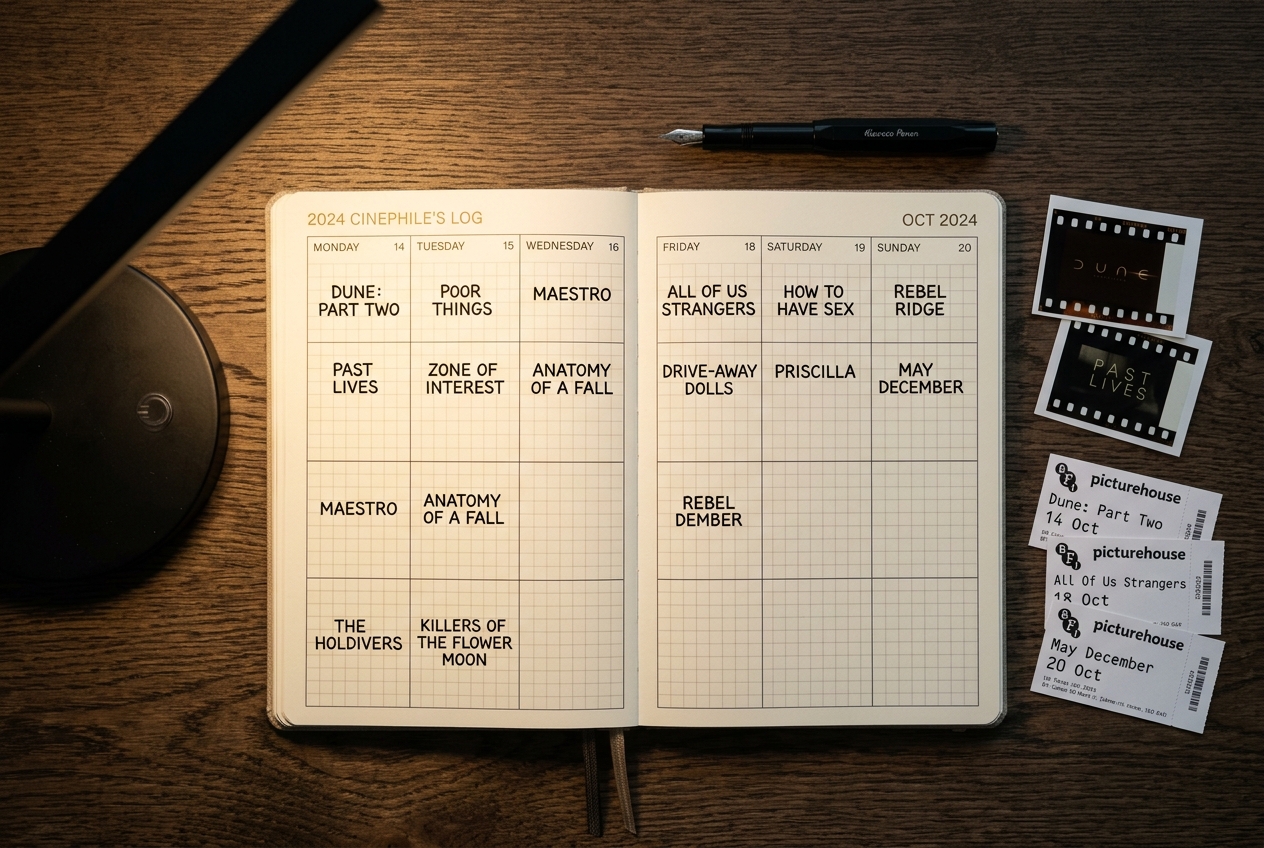 2024 CINEPHILE'S LOG
OCT 2024
MONDAY 14
TUESDAY 15
WEDNESDAY 16
FRIDAY 18
SATURDAY 19
SUNDAY 20
DUNE:
PART TWO
POOR
THINGS
MAESTRO
ALL OF US
STRANGERS
HOW TO
HAVE SEX
REBEL
RIDGE
PAST
LIVES
ZONE OF
INTEREST
ANATOMY
OF A FALL
DRIVE-AWAY
DOLLS
PRISCILLA
MAY
DECEMBER
MAESTRO
ANATOMY
OF A FALL
REBEL
DEMBER
THE
HOLDIVERS
KILLERS OF
THE FLOWER
MOON
DUNE
PAST
LIVES
BFI picturehouse
Dune: Part Two
14 Oct
BFI picturehouse
All Of Us Strangers
18 Oct
BFI picturehouse
May December
20 Oct